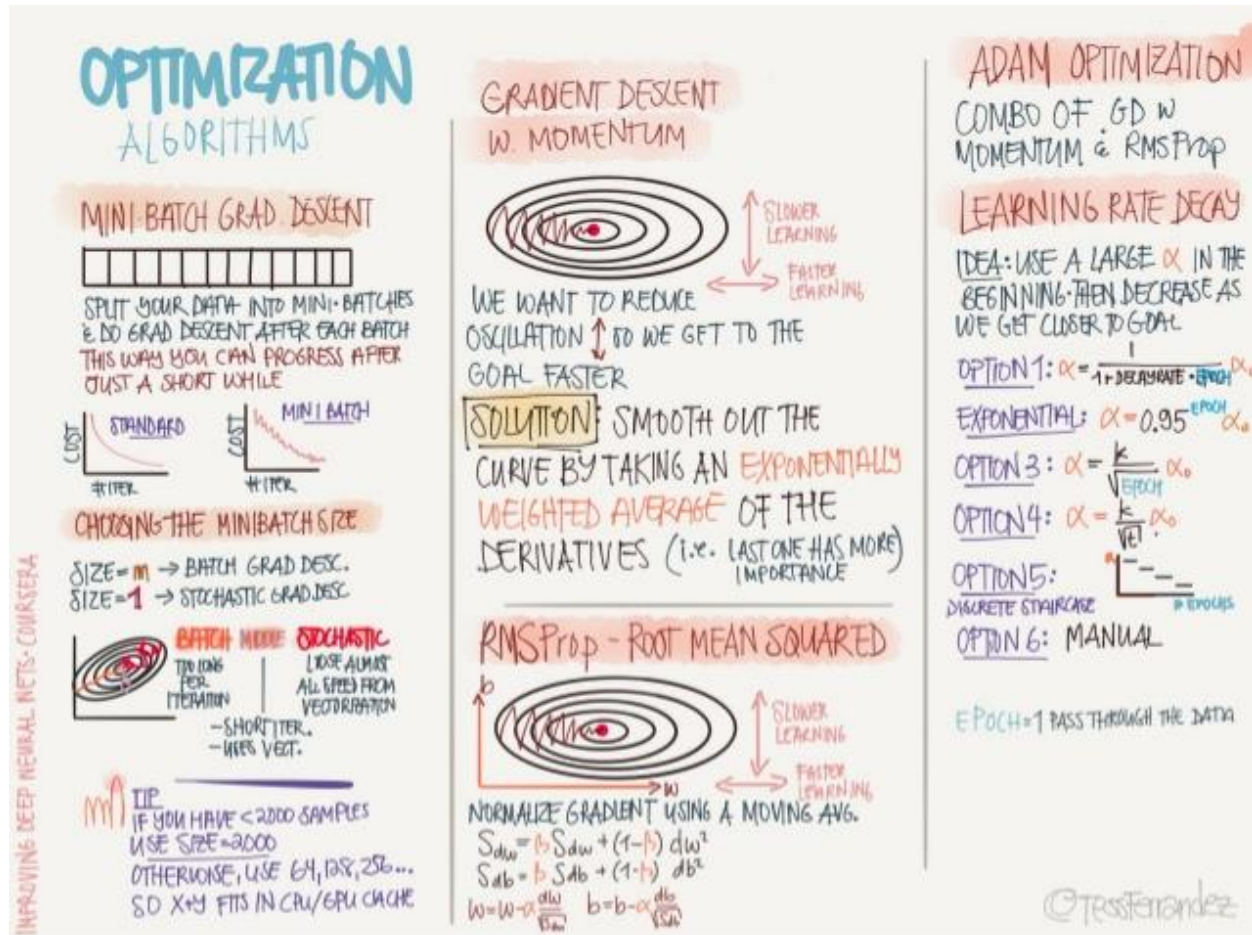 OPTIMIZATION
ALGORITHMS
MINI-BATCH GRAD. DESCENT
SPLIT YOUR DATA INTO MINI-BATCHES
& DO GRAD DESCENT AFTER EACH BATCH
THIS WAY YOU CAN PROGRESS AFTER
JUST A SHORT WHILE
COST
STANDARD
# ITER
COST
MINI BATCH
# ITER
CHOOSING THE MINIBATCH SIZE
SIZE = m → BATCH GRAD DESC.
SIZE = 1 → STOCHASTIC GRAD DESC
BATCH MIDDLE STOCHASTIC
TOO LONG
PER
ITERATION
LOOSE ALMOST
ALL SPEED FROM
VECTORIZATION
- SHORT ITER.
- USES VECT.
TIP
IF YOU HAVE < 2000 SAMPLES
USE SIZE = 2000
OTHERWISE, USE 64, 128, 256...
SO X+Y FITS IN CPU/GPU CACHE
IMPROVING DEEP NEURAL NETS · COURSERA
GRADIENT DESCENT
W. MOMENTUM
SLOWER
LEARNING
FASTER
LEARNING
WE WANT TO REDUCE
OSCILLATION ↕ SO WE GET TO THE
GOAL FASTER
SOLUTION: SMOOTH OUT THE
CURVE BY TAKING AN EXPONENTIALLY
WEIGHTED AVERAGE OF THE
DERIVATIVES (i.e. LAST ONE HAS MORE
IMPORTANCE)
RMSProp - ROOT MEAN SQUARED
b
SLOWER
LEARNING
w
FASTER
LEARNING
NORMALIZE GRADIENT USING A MOVING AVG.
Sdw = β Sdw + (1-β) dw²
Sdb = β Sdb + (1-β) db²
w = w - α dw/√Sdw b = b - α db/√Sdb
ADAM OPTIMIZATION
COMBO OF GD W
MOMENTUM & RMSProp
LEARNING RATE DECAY
IDEA: USE A LARGE α IN THE
BEGINNING. THEN DECREASE AS
WE GET CLOSER TO GOAL
OPTION 1: α = 1/(1 + DECAYRATE · EPOCH) α₀
EXPONENTIAL: α = 0.95^EPOCH α₀
OPTION 3: α = k/√EPOCH α₀
OPTION 4: α = k/√t α₀.
OPTION 5:
DISCRETE STAIRCASE
α
# EPOCHS
OPTION 6: MANUAL
EPOCH = 1 PASS THROUGH THE DATA
@TessFerrandez